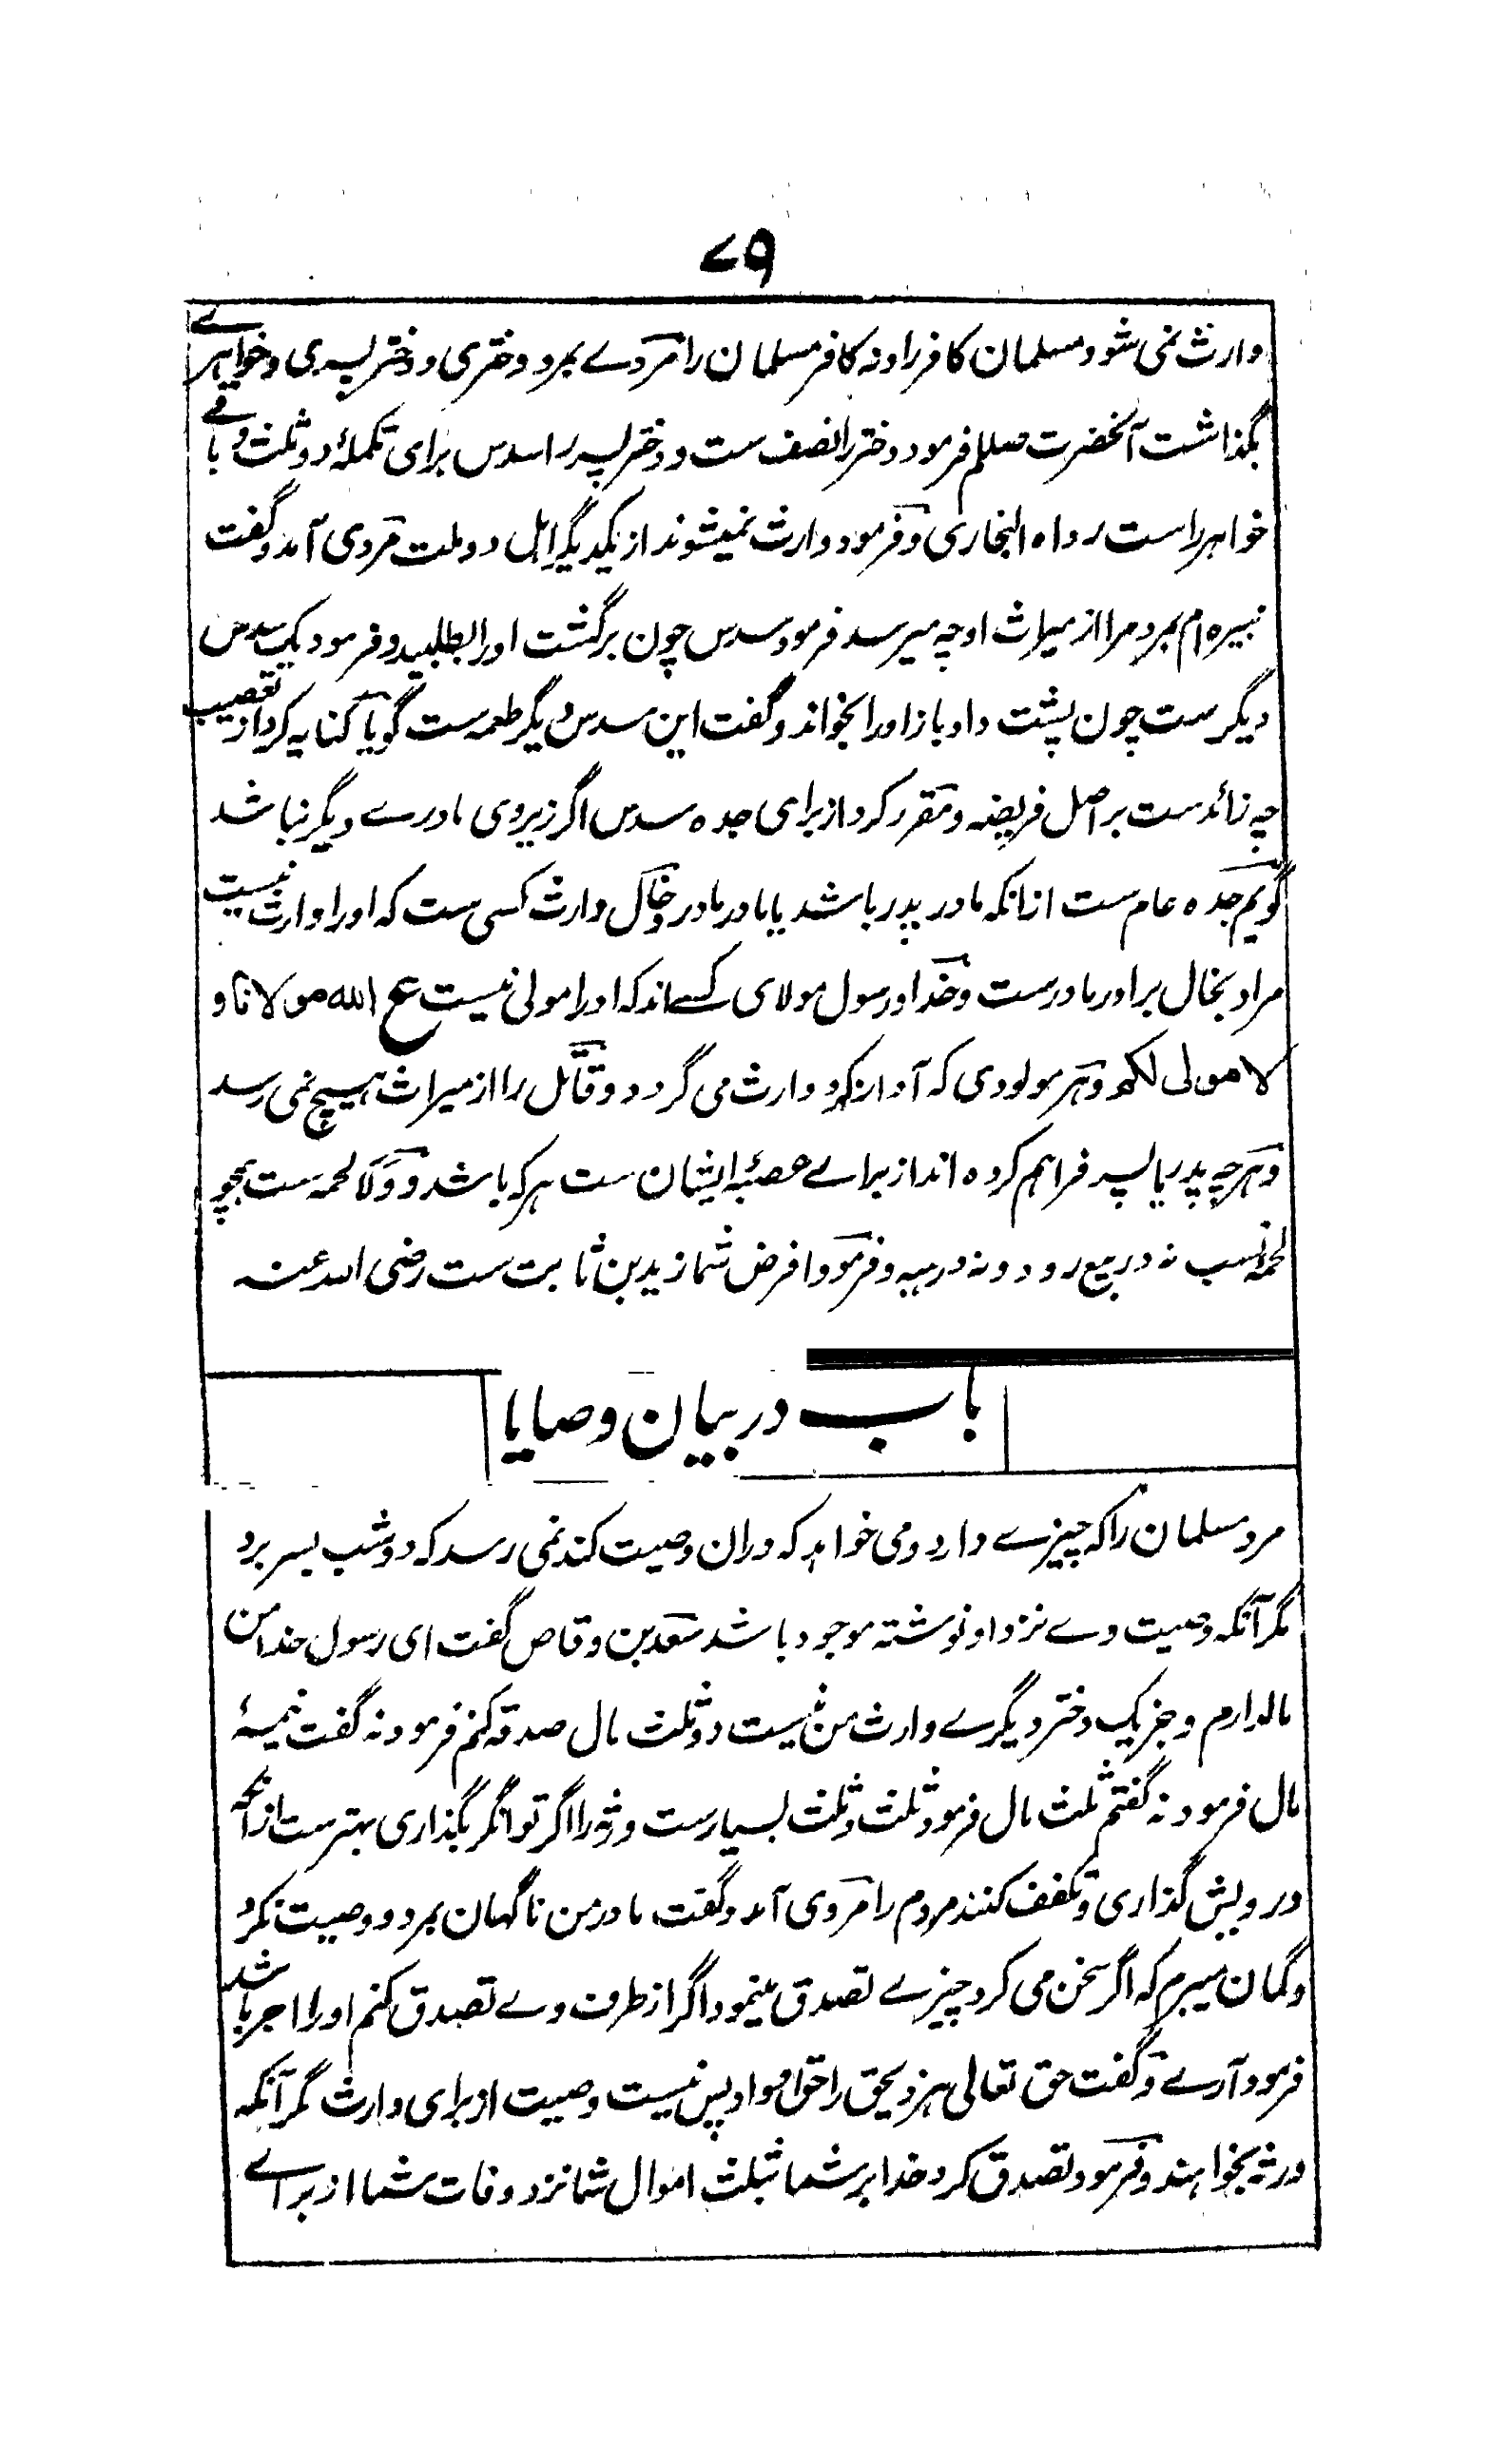 ۷۹
وارث نمی شود مسلمان کافر را و نه کافر مسلمان را مردے بمرد و دختری و دختر پسری و خواہرے
بگذاشت آنحضرت صلعم فرمود دختر را نصف ست و دختر پسر را سدس برای تکملۂ دو ثلث و باقے
خواہر راست رواه البخاری و فرمود وارث نمیشوند از یکدیگر اہل دو ملت مردی آمد و گفت
نبیرہ ام بمرد مرا از میراث او چه میرسد فرمود سدس چون برگشت او را بطلبید و فرمود یک سدس
دیگر ست چون پشت داد باز او را بخواند و گفت این سدس دیگر طعمه ست گویا کنایه کرد از تعصیب
چه زائد ست بر اصل فریضه و مقرر کرد از برای جدہ سدس اگر زیر وی مادرے دیگر نباشد
گویم جدہ عام ست ازانکه مادر پدر باشد یا مادر مادر و خال وارث کسی ست که او را وارث نیست
مراد بخال برادر مادرست و خدا و رسول مولای کسے اند که او را مولی نیست ع الله مولانا و
لا مولی لکم و ہر مولودی که آواز کرد وارث می گردد و قاتل را از میراث ہیچ نمی رسد
و ہر چه پدر یا پسر فراہم کردہ اند از براے عصبۂ ایشان ست ہر که باشد و ولا لحمه ست ہمچو
لحمۂ نسب نه در بیع رود و نه در ہبه و فرمود افرض شما زید بن ثابت ست رضی الله عنه
باب در بیان وصایا
مرد مسلمان را که چیزے دارد و می خواہد که دران وصیت کند نمی رسد که دو شب بسر برد
مگر آنکه وصیت وے نزد او نوشته موجود باشد سعد بن وقاص گفت ای رسول خدا من
مالدارم و جز یک دختر دیگرے وارث من نیست دو ثلث مال صدقه کنم فرمود نه گفت نیمۂ
مال فرمود نه گفتم ثلث مال فرمود ثلث و ثلث بسیارست و ورثه را اگر توانگر بگذاری بہتر ست ازانکه
درویش گذاری و تکفف کنند مردم را مردی آمد و گفت مادر من ناگہان بمرد و وصیت نکرد
و گمان میبرم که اگر سخن می کرد چیزے تصدق مینمود اگر از طرف وے تصدق کنم او را اجر باشد
فرمود آرے و گفت حق تعالی ہر ذیحق را حق او داد پس نیست وصیت از برای وارث مگر آنکه
ورثه بخواہند و فرمود تصدق کرد خدا بر شما بثلث اموال شما نزد وفات شما از براے